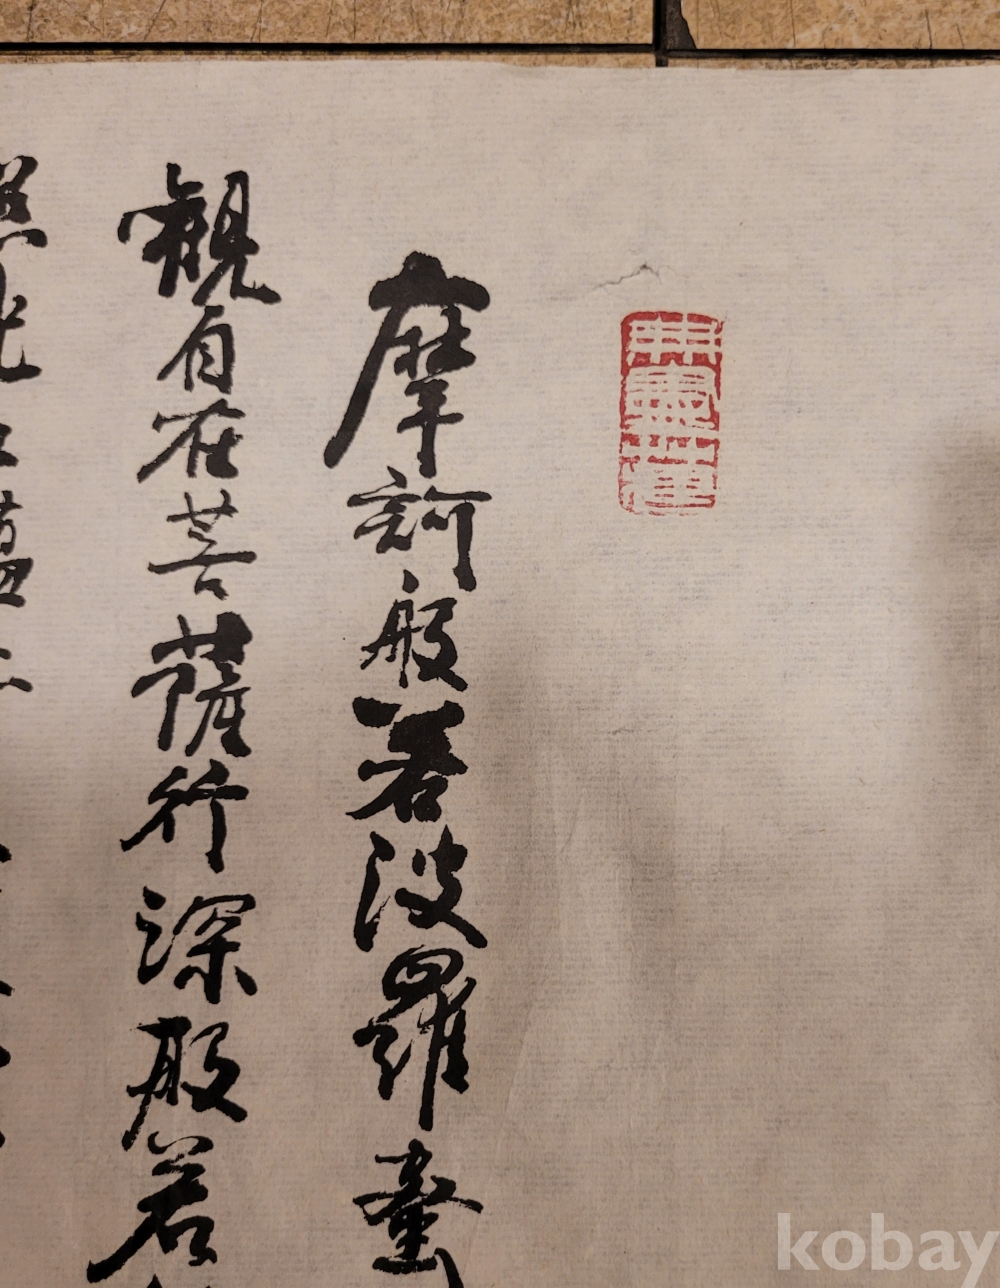 摩訶般若波羅蜜
観自在菩薩行深般若
照見五蘊
kobay